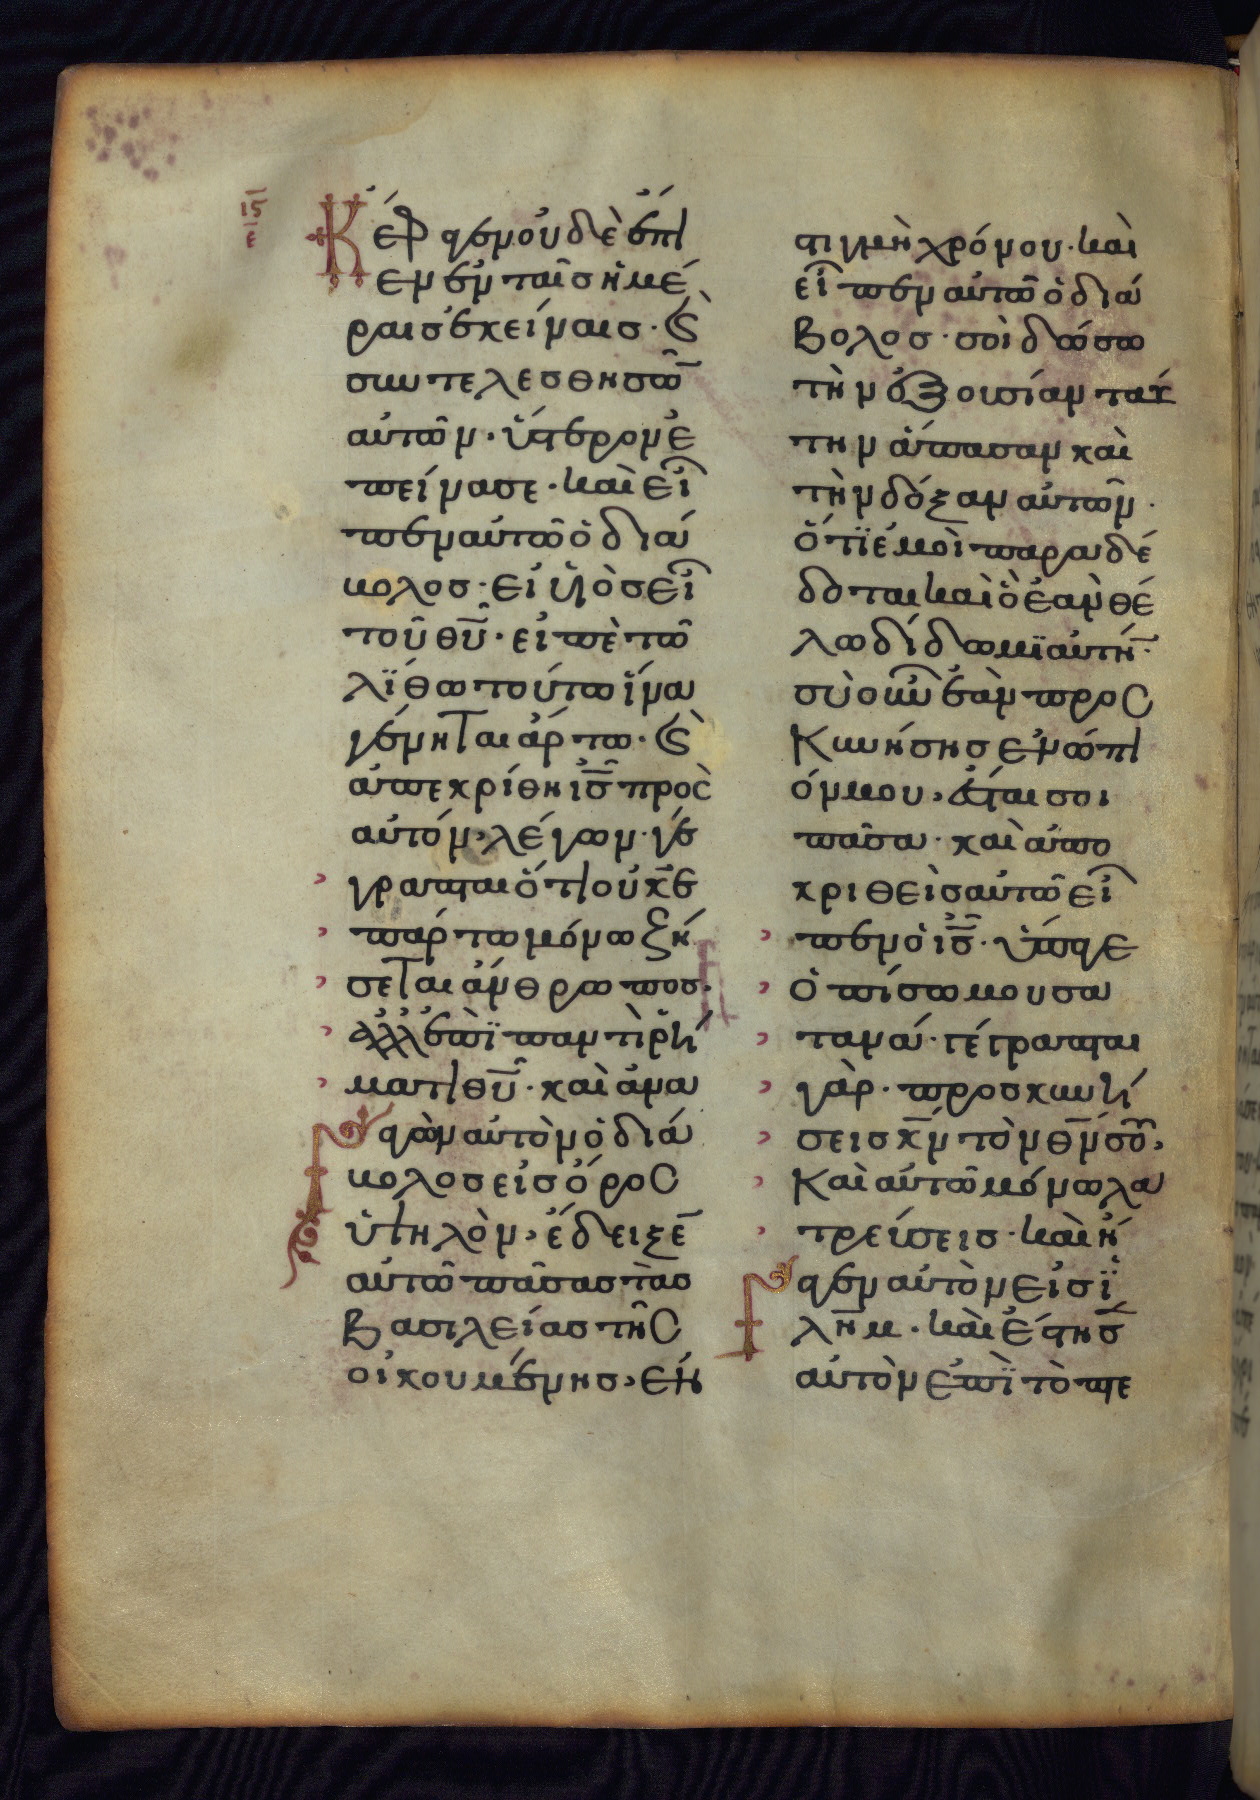 ιϛ
ε
Κέρ
Κ ὲφαγεν οὐδὲν ἐπὶ
ἐν ἐν ταῖς ἡμέ
ραις ἐκείναις· (καὶ)
συντελεσθησῶ̅
αὐτῶν· ὕστερον ἐ
πείνασε· καὶ εἶ
πεν αὐτῶ ὁ διά
βολος· εἰ υἱὸς εἶ
τοῦ θ̅υ̅· εἰπὲ τῶ
λίθω τούτω ἵνα
γένηται ἄρτος· (καὶ)
ἀπεκρίθη ι̅ς̅ πρὸς
αὐτόν, λέγων· γέ
γραπται ὅτι οὐκ ἐ
π' ἄρτω μόνω ζή
σεται ἄνθρωπος·
ἀλλ' ἐπὶ παντὶ ῥή
ματι θ̅υ̅· καὶ ἀνα
γαγὼν αὐτὸν ὁ διά
βολος εἰς ὄρος
ὑψηλὸν, ἔδειξε̅
αὐτῶ πάσας τὰς
βασιλείας τῆς
οἰκουμένης, ἐν
στιγμῆ χρόνου· καὶ
εἶπεν αὐτῶ ὁ διά
βολος· σοὶ δώσω
τὴν ἐξουσίαν ταύ
την ἅπασαν καὶ
τὴν δόξαν αὐτῶν·
ὅτϊ ἐμοὶ παραδέ
δοται καὶ ὃ ἐὰν θέ
λω δίδωμϊ αὐτήν·
σὺ οὖν ἐὰν προσ
κυνήσης ἐνώπι
όν μου, ἔσται σοι
πᾶσα· καὶ ἀπο
κριθεὶς αὐτῶ εἶ
πεν ὁ ι̅ς̅· ὕπαγε
ὀπίσω μου σα
τανᾶ· γέγραπται
γάρ· προσκυνή
σεις κ̅ν̅ τὸν θ̅ν̅ σου,
καὶ αὐτῶ μόνω λα
τρεύσεις· καὶ ἤ
γαγεν αὐτὸν εἰς ϊ
λη̅μ· καὶ ἔστησ̅
αὐτὸν ἐπὶ τὸ πτε